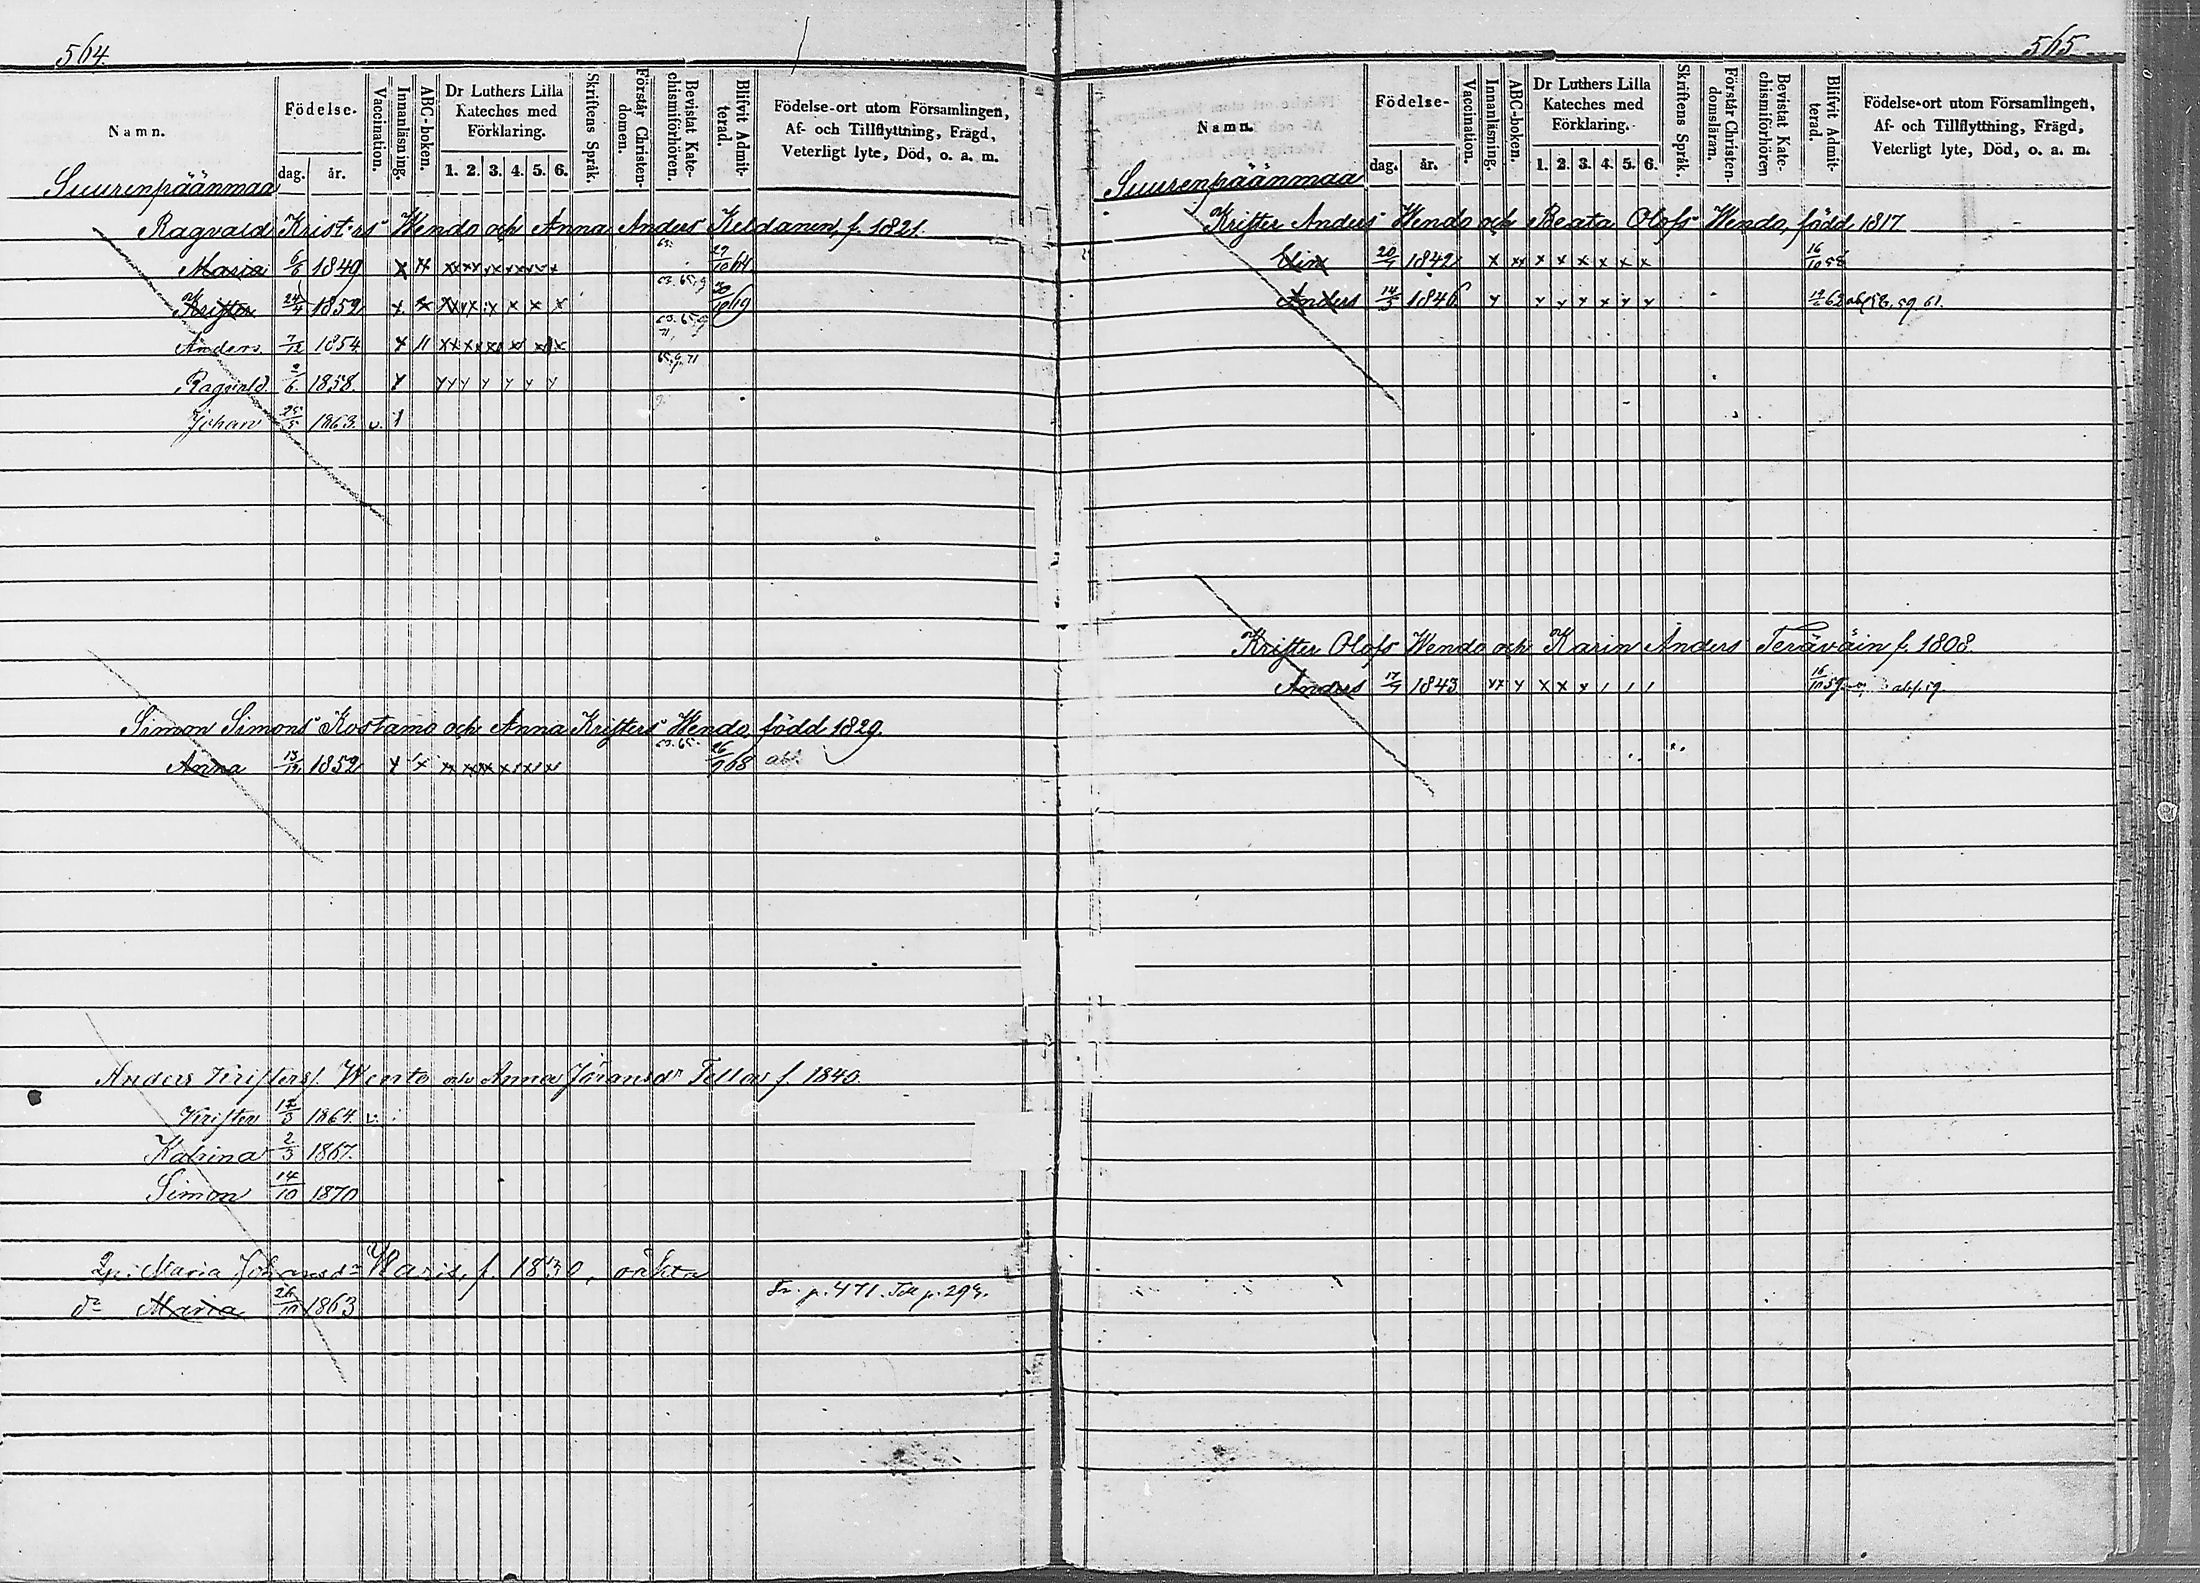 564.
Namn.
Födelse-
dag. år.
Vaccination.
Innanläsning.
ABC-boken.
Dr Luthers Lilla
Kateches med
Förklaring.
1. 2. 3. 4. 5. 6.
Skriftens Språk.
Förstår Christen-
domen.
Bevistat Kate-
chismiförhören.
Blifvit Admit-
terad.
Födelse-ort utom Församlingen,
Af- och Tillflyttning, Frägd,
Veterligt lyte, Död, o. a. m.
Suurenpäänmaa
Ragvald Kristers Wendo och Anna Anders Keldanen, f. 1821.
Maria 6/6 1849 27/10 64
Krister 24/4 1852 63. 65. 9 30/10 69
Anders 7/12 1854 63. 65. 9 71
Ragvald 2/6 1858. 65. 9. 71
Johan 25/5 1863. v.
Simon Simons Kostamo och Anna Kristers Wendo, född 1829.
Anna 13/12 1852 63. 65. 26/9 68 abs.
Anders Kristers. Wento och Anna Jöransdr Tellas f. 1840.
Krister 17/3 1864. v.
Katrina 2/3 1867.
Simon 14/10 1870
Maria Johansdr Waris, f. 1830, oäkta
dr Maria 26/10 1863 Fr. p. 471. Till p. 293.
565
Namn.
Födelse-
dag. år.
Vaccination.
Innanläsning.
ABC-boken.
Dr Luthers Lilla
Kateches med
Förklaring.
1. 2. 3. 4. 5. 6.
Skriftens Språk.
Förstår Christen-
domsläran.
Bevistat Kate-
chismiförhören
Blifvit Admit-
terad.
Födelse-ort utom Församlingen,
Af- och Tillflyttning, Frägd,
Veterligt lyte, Död, o. a. m.
Suurenpäänmaa
Krister Anders Wendo och Beata Olofs Wendo, född 1817
Elin 20/7 1842 16/10 58
Anders 14/3 1846 62 abs. 58, 59, 61.
Krister Olofs Wendo och Karin Anders Teräväin f. 1808.
Anders 17/7 1843 16/10 59 abs. 59.